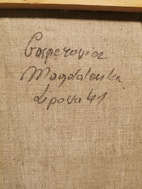 Gasperovič
Magdalenka
Lipova 41